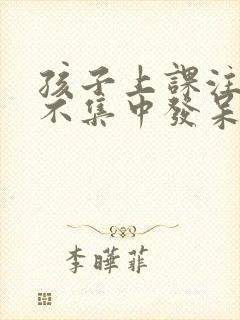 孩子上課注
不集中發呆
李曄菲